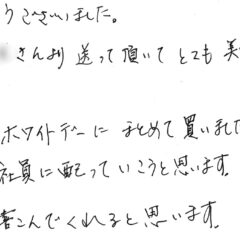 うございました。
さんより送って頂いてとても美
ホワイトデーにまとめて買いまし
社員に配っていこうと思います。
喜こんでくれると思います。